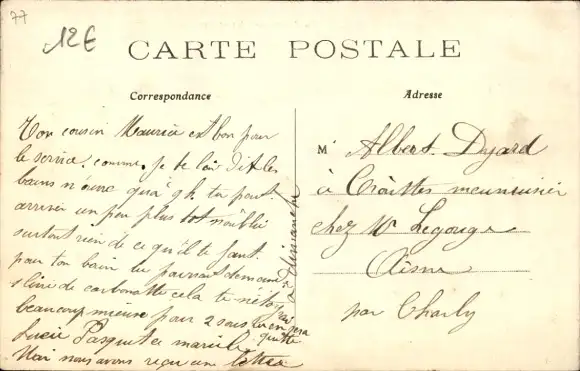 77
12€
CARTE POSTALE
Correspondance
Adresse
Ton cousin Maurice est bon pour
le service. comme je te l'ai dit les
bains n'ouvre qu'a 9 h tu peut
arriver un peu plus tot n'oublie
surtout rien de ce qu'il te faut.
pour ton bain tu pourras demander
1 livre de carbonatte cela te
beaucoup mieux pour 2 sous
Lucie Pasquet et marcelle
nous avons reçu une lettre
a dimanche
M Albert Dyard
à Crouttes
chez Mr Legouge
Aisne
par Charly